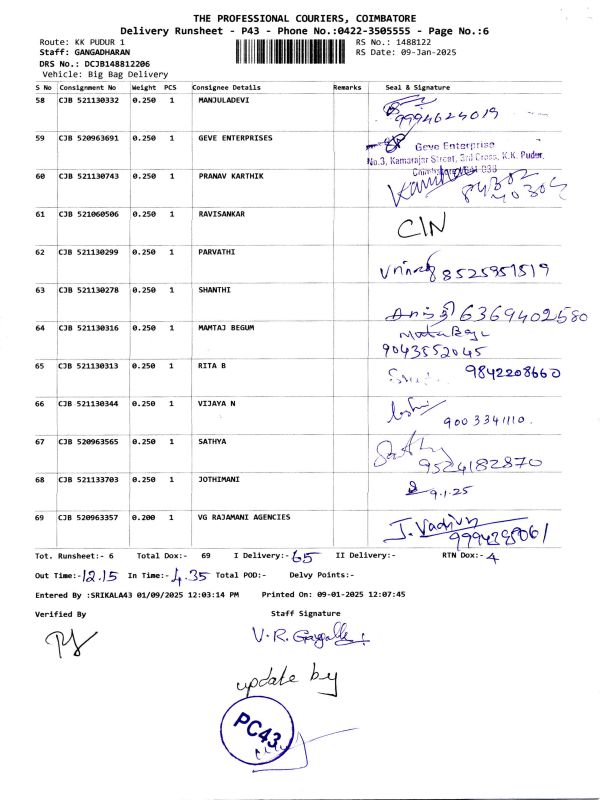 THE PROFESSIONAL COURIERS, COIMBATORE
Delivery Runsheet - P43 - Phone No.:0422-3505555 - Page No.:6
Route: KK PUDUR 1 RS No.: 1488122
Staff: GANGADHARAN RS Date: 09-Jan-2025
DRS No.: DCJB148812206
Vehicle: Big Bag Delivery
S No Consignment No Weight PCS Consignee Details Remarks Seal & Signature
58 CJB 521130332 0.250 1 MANJULADEVI 9994624019
59 CJB 520963691 0.250 1 GEVE ENTERPRISES Geve Enterprise
No.3, Kamarajar Street, 3rd Cross, K.K. Pudur,
60 CJB 521130743 0.250 1 PRANAV KARTHIK
61 CJB 521060506 0.250 1 RAVISANKAR C/N
62 CJB 521130299 0.250 1 PARVATHI 8525951519
63 CJB 521130278 0.250 1 SHANTHI 6369402580
64 CJB 521130316 0.250 1 MAMTAJ BEGUM
9043552045
65 CJB 521130313 0.250 1 RITA B 9842208660
66 CJB 521130344 0.250 1 VIJAYA N
9003341110.
67 CJB 520963565 0.250 1 SATHYA
9524182870
68 CJB 521133703 0.250 1 JOTHIMANI 9.1.25
69 CJB 520963357 0.200 1 VG RAJAMANI AGENCIES J. Vadivu
Tot. Runsheet:- 6 Total Dox:- 69 I Delivery:- 65 II Delivery:- RTN Dox:- 4
Out Time:- 12.15 In Time:- 4.35 Total POD:- Delvy Points:-
Entered By :SRIKALA43 01/09/2025 12:03:14 PM Printed On: 09-01-2025 12:07:45
Verified By Staff Signature
update by
PC43